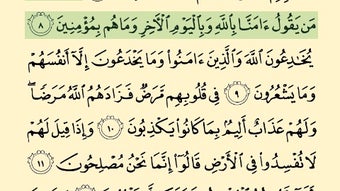 مَن يَقُولُ ءَامَنَّا بِٱللَّهِ وَبِٱلْيَوْمِ ٱلْأَخِرِ وَمَا هُم بِمُؤْمِنِينَ ٨
يُخَٰدِعُونَ ٱللَّهَ وَٱلَّذِينَ ءَامَنُوا۟ وَمَا يَخْدَعُونَ إِلَّآ أَنفُسَهُمْ
وَمَا يَشْعُرُونَ ٩ فِى قُلُوبِهِم مَّرَضٌ فَزَادَهُمُ ٱللَّهُ مَرَضًا ۖ
وَلَهُمْ عَذَابٌ أَلِيمٌۢ بِمَا كَانُوا۟ يَكْذِبُونَ ١٠ وَإِذَا قِيلَ لَهُمْ
لَا تُفْسِدُوا۟ فِى ٱلْأَرْضِ قَالُوٓا۟ إِنَّمَا نَحْنُ مُصْلِحُونَ ١١